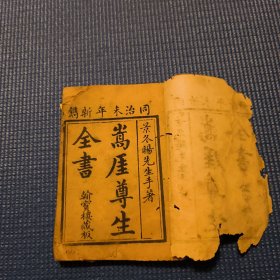 同治未年新鐫
景冬暘先生手著
嵩厓尊生
全書
翰寶樓藏板